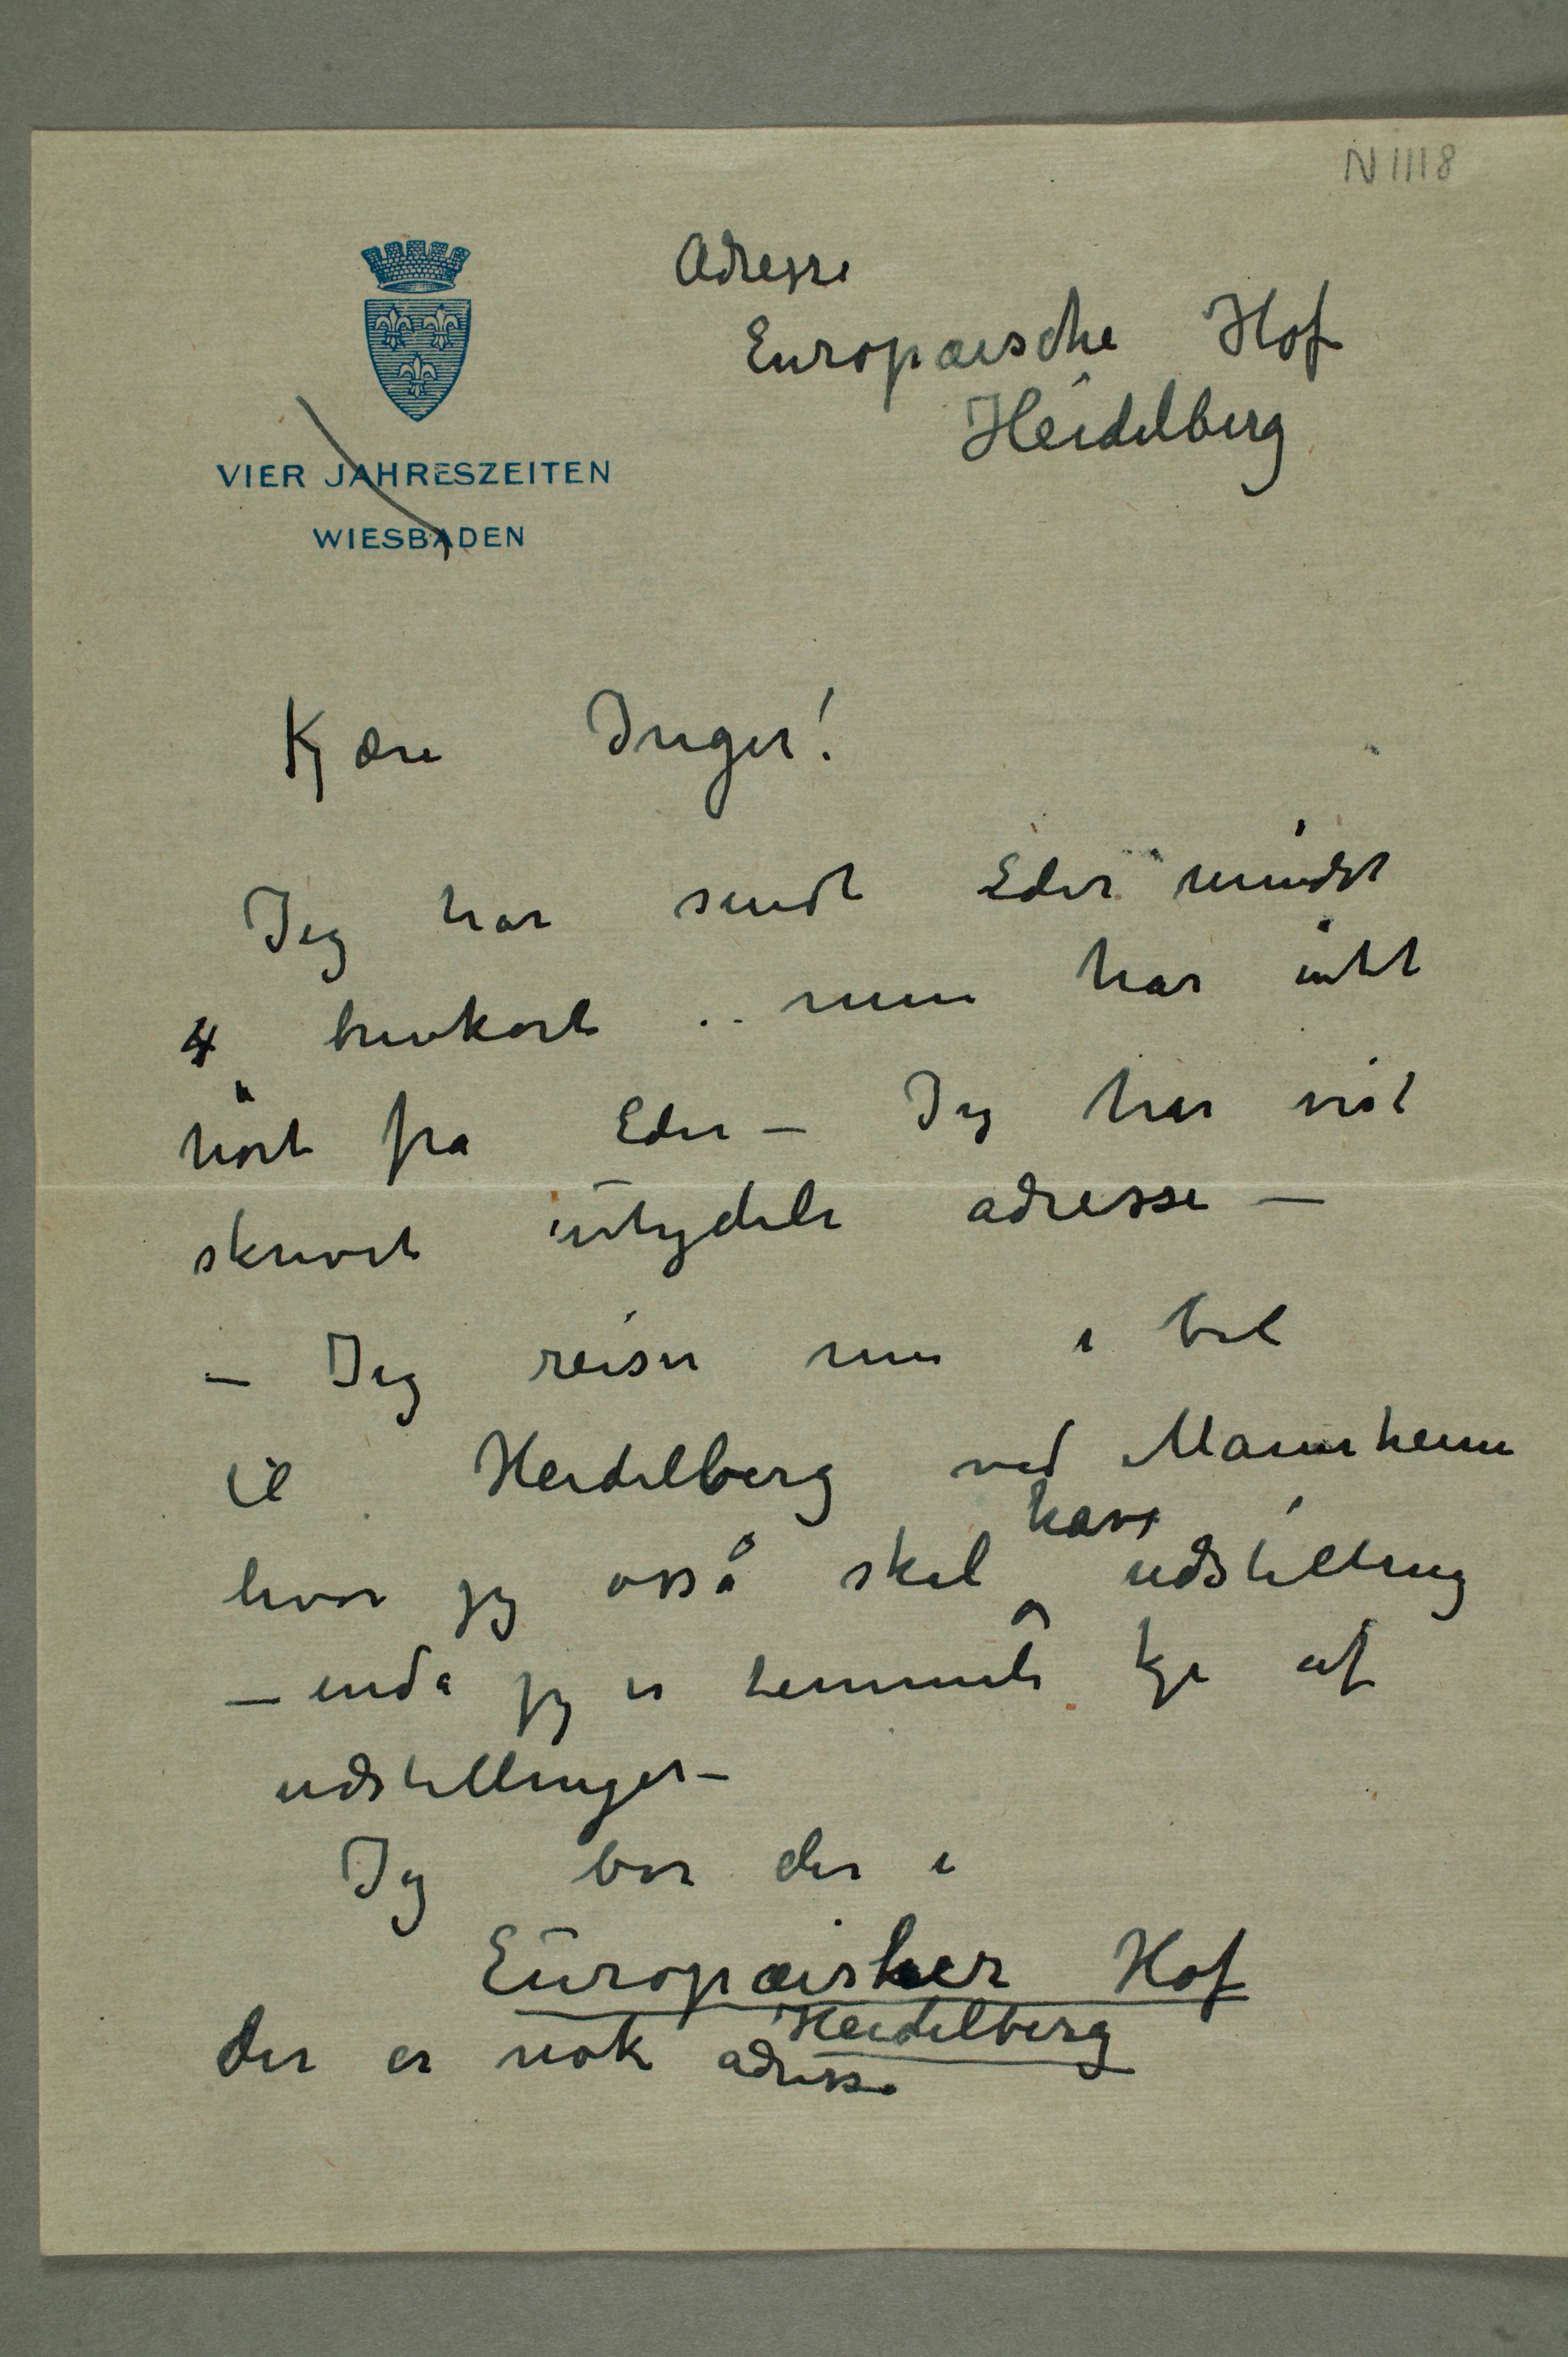 N 1118
Adresse
Europæische Hof
Heidelberg
VIER JAHRESZEITEN
WIESBADEN
Kjære Inger!
Jeg har sendt Eder mindst
4 brevkort .. men har intet
hørt fra Eder – Jeg har vist
skrevet utydeli adresse –
– Jeg reiser nu i bil
til Heidelberg ved Mannheim
hvor jeg også skal have udstilling
– enda jeg er temmeli kje af
udstillinger –
Jeg bor der i
Europæisher Hof
Heidelberg
der er nok adresse